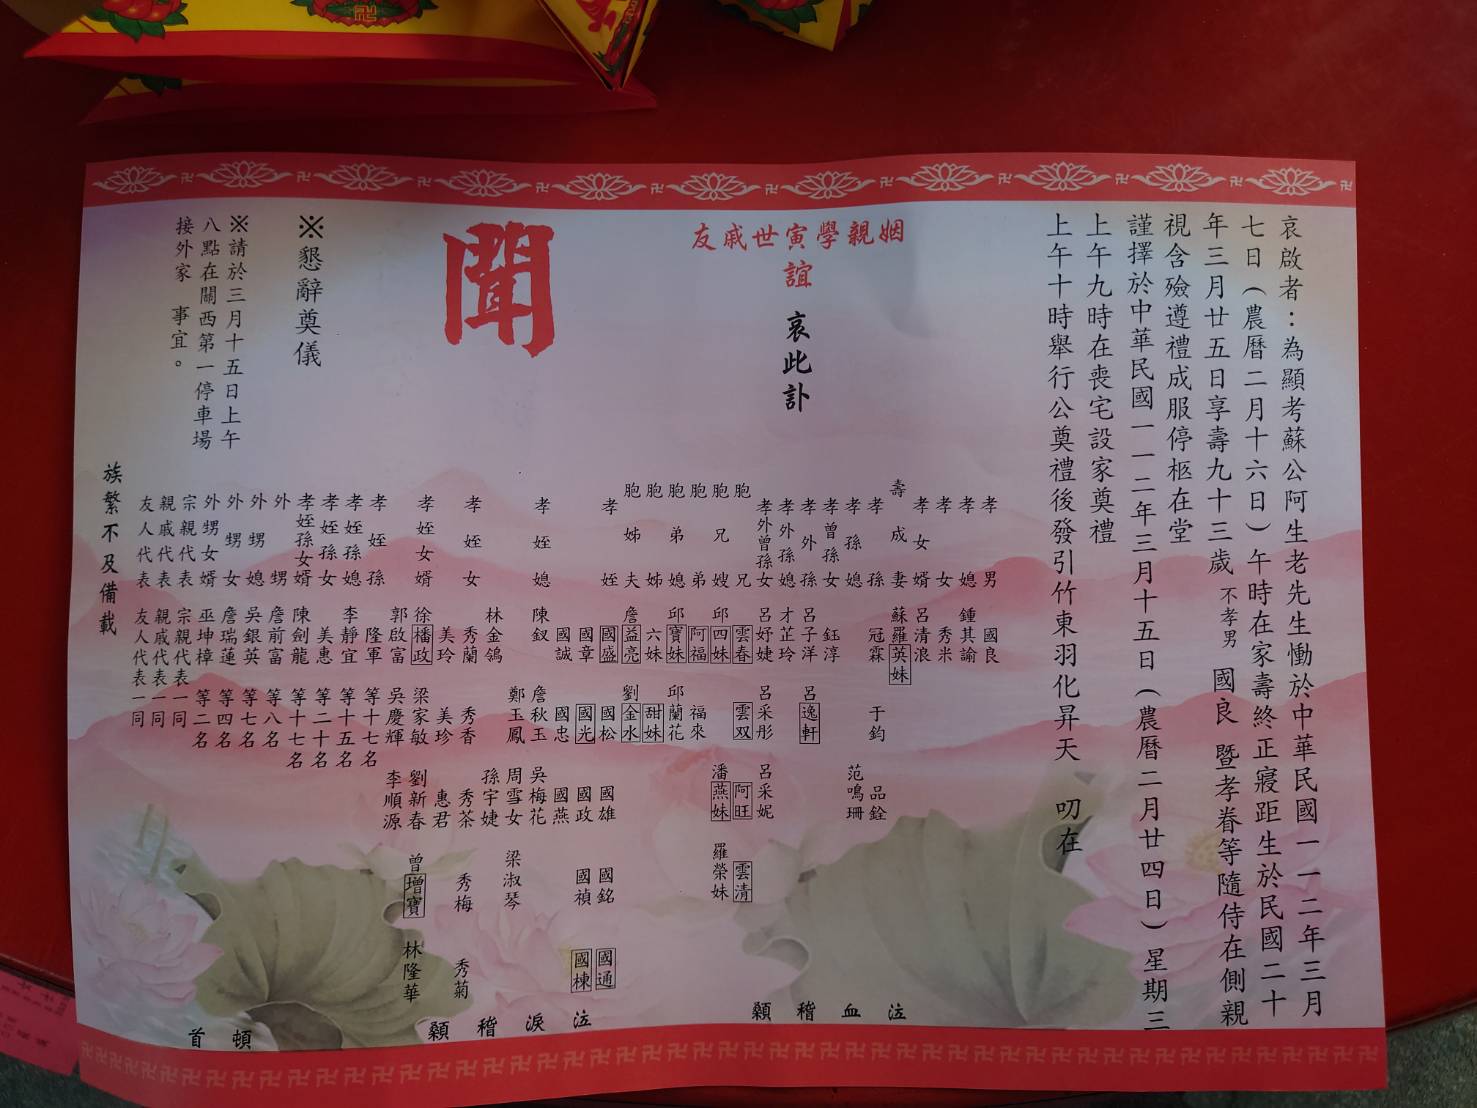 哀啟者：為顯考蘇公阿生老先生慟於中華民國一一二年三月
七日（農曆二月十六日）午時在家壽終正寢距生於民國二十
年三月廿五日享壽九十三歲 不孝男 國良 暨孝眷等隨侍在側親
視含殮遵禮成服停柩在堂
謹擇於中華民國一一二年三月十五日（農曆二月廿四日）星期三
上午九時在喪宅設家奠禮
上午十時舉行公奠禮後發引竹東羽化昇天 叨在
姻親學寅世戚友
誼 哀此訃
聞
孝男 國良
孝媳 鍾其諭
孝女 秀米
孝女婿 呂清浪
壽成妻 蘇羅英妹
孝孫 冠霖 于鈞 品銓
孝孫媳 范鳴珊
孝曾孫女 鈺淳
孝外孫 呂子洋 呂逸軒
孝外孫媳 才芷玲
孝外曾孫女 呂妤婕 呂采彤 呂采妮
胞兄 雲春 雲双 阿旺 雲清
胞兄嫂 邱四妹 潘燕妹 羅榮妹
胞弟 阿福 福來
胞弟媳 邱寶妹 邱蘭花
胞姊 六妹 甜妹
胞姊夫 詹益亮 劉金水
孝姪 國盛 國松 國雄 國銘 國通
國章 國光 國政 國禎 國棟
國誠 國忠 國燕
孝姪媳 陳釵 詹秋玉 吳梅花
鄭玉鳳 周雪女 梁淑琴
孫宇婕
林金鴒
孝姪女 秀蘭 秀香 秀茶 秀梅 秀菊
美玲 美珍 惠君
孝姪女婿 徐橎政 梁家敏 劉新春 曾增寶 林隆華
郭啟富 吳慶輝 李順源
孝姪孫 隆軍 等十七名
孝姪孫媳 李靜宜 等十五名
孝姪孫女 美惠 等二十名
孝姪孫女婿 陳劍龍 等十七名
外甥 詹前富 等八名
外甥媳 吳銀英 等七名
外甥女 詹瑞蓮 等四名
外甥女婿 巫坤樟 等二名
宗親代表 宗親代表一同
親戚代表 親戚代表一同
友人代表 友人代表一同
泣血稽顙
泣淚稽顙
頓首
族繁不及備載
※懇辭奠儀
※請於三月十五日上午
八點在關西第一停車場
接外家 事宜。